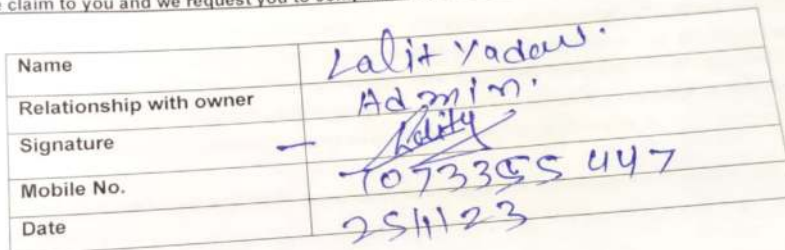 claim to you and we request you to
Name Lalit Yadav.
Relationship with owner Admin.
Signature – Lality
Mobile No. 7073355447
Date 25/1/23